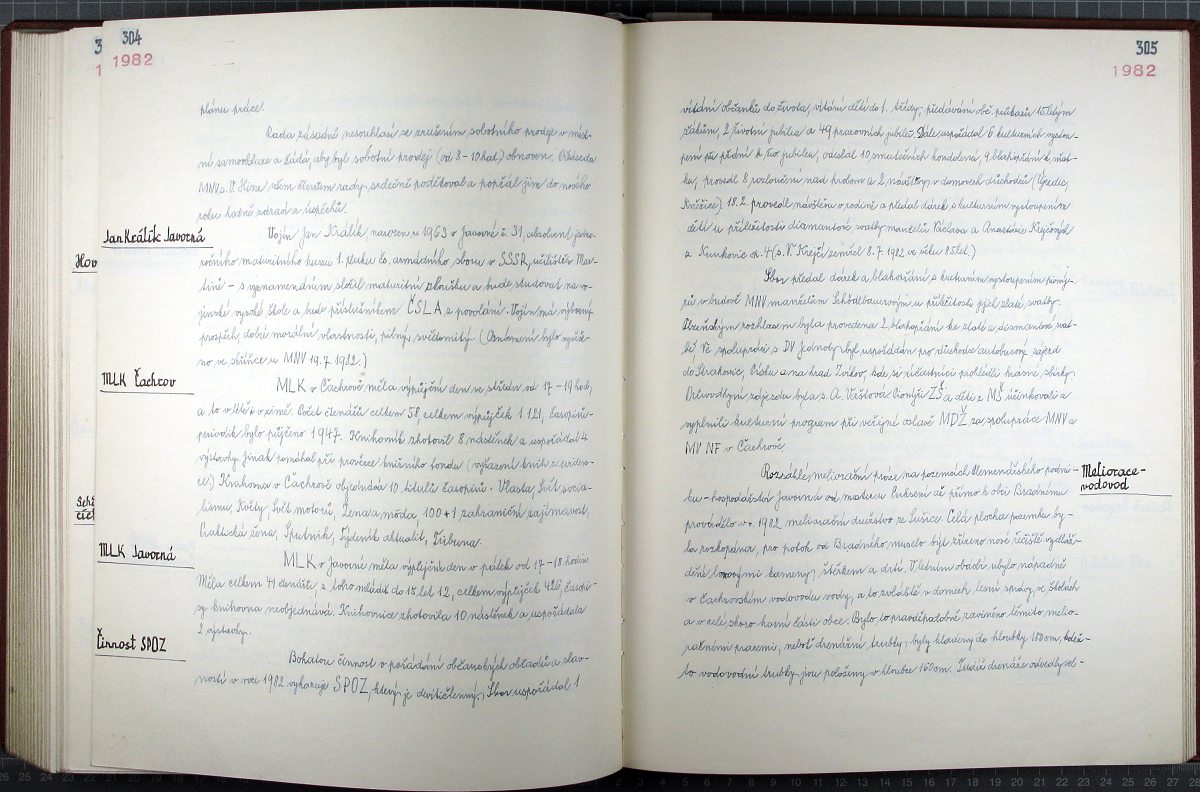 304
1982
plánu práce!
Rada zásadně nesouhlasí se zrušením sobotního prodeje v míst-
ní samoobsluze a žádá, aby byl sobotní prodej (od 8-10 hod.) obnoven. Předseda
MNV s. V. Hinec všem členům rady srdečně poděkoval a popřál jim do nového
roku hodně zdraví a úspěchů.
Jan Králík Javorná
Vojín Jan Králík, narozen r. 1963 v Javorné č. 31, absolvent jedno-
ročního maturitního kursu 1. pluku čs. armádního sboru v SSSR, učiliště v Mar-
tině - s vyznamenáním složil maturitní zkoušku a bude studovat na vo-
jenské vysoké škole a bude příslušníkem ČSLA z povolání. Vojín má výborný
prospěch, dobré morální vlastnosti, pilný, svědomitý. (Oznámení bylo vyvěše-
no ve skříňce u MNV 19.7.1982.)
MLK Čachrov
MLK v Čachrově měla výpůjční den ve středu od 17-19 hod.,
a to v létě i v zimě. Počet čtenářů celkem 58, celkem výpůjček 1 121, časopisů-
periodik bylo půjčeno 1947. Knihovník zhotovil 8 nástěnek a uspořádal 4
výstavky. Jinak pomáhal při prověrce knižního fondu (vyřazení knih z eviden-
ce.) Knihovna v Čachrově objednává 10 titulů časopisů: Vlasta, Svět socia-
lismu, Květy, Svět motorů, Žena a móda, 100+1 zahraniční zajímavost,
Praktická žena, Sputnik, Týdeník aktualit, Tribuna.
MLK Javorná
MLK v Javorné měla výpůjční den v pátek od 17-18 hodin.
Měla celkem 41 čtenářů, z toho mládež do 15 let 12, celkem výpůjček 426, časopi-
sy knihovna neobjednává. Knihovnice zhotovila 10 nástěnek a uspořádala
2 výstavky.
Činnost SPOZ
Bohatou činnost v pořádání občanských obřadů a slav-
ností v roce 1982 vykazuje SPOZ, který je devítičlenný. Sbor uspořádal 1
305
1982
vítání občánků do života, vítání dětí do 1. třídy, předávání obč. průkazů 15letým
žákům, 2 životní jubilea a 49 pracovních jubileí. Dále uspořádal 6 kulturních vystou-
pení při přání k živ. jubileu, odeslal 10 smutečních kondolencí, 9 blahopřání k sňat-
ku, provedl 8 rozloučení nad hrobem a 2 návštěvy v domovech důchodců (Újezdec,
Kněžice). 18.2. provedl návštěvu v rodině a předal dárek s kulturním vystoupením
dětí u příležitosti diamantové svatby manželů Václava a Anastázie Krejčových
z Kunkovic čp. 4 (s. V. Krejčí zemřel 8.7.1982 ve věku 85 let.)
Sbor předal dárek a blahopřání s kulturním vystoupením pioný-
rů v budově MNV manželům Schödlbauerovým u příležitosti jejich zlaté svatby.
Plzeňským rozhlasem byla provedena 2 blahopřání ke zlaté a diamantové svat-
bě. Ve spolupráci s DV Jednoty byl uspořádán pro důchodce autobusový zájezd
do Strakonic, Písku a na hrad Zvíkov, kde si účastníci prohlédli krásné sbírky.
Průvodkyní zájezdu byla s. A. Vaštová. Pionýři ZŠ a děti z MŠ účinkovali a
vyplnili kulturní program při veřejné oslavě MDŽ za spolupráce MNV a
MV NF v Čachrově.
Meliorace-
vodovod
Rozsáhlé meliorační práce na pozemcích Plemenářského podni-
ku - hospodářství Javorná od mostu u Cukrenů až přímo k obci Bradnému
provádělo v r. 1982 meliorační družstvo ze Sušice. Celá plocha pozemku by-
la rozkopána, pro potok od Bradného muselo být zřízeno nové řečiště vydláž-
děné lomovými kameny, štěrkem a drtí. V letním období ubylo nápadně
v čachrovském vodovodu vody, a to zvláště v domech lesní správy, ve školách
a v celé skoro horní části obce. Bylo to pravděpodobně zaviněno těmito melio-
račními pracemi, neboť drenážní trubky byly kladeny do hloubky 180 cm, kdež-
to vodovodní trubky jsou položeny v hloubce 160 cm. Tudíž drenáže odvedly vel-